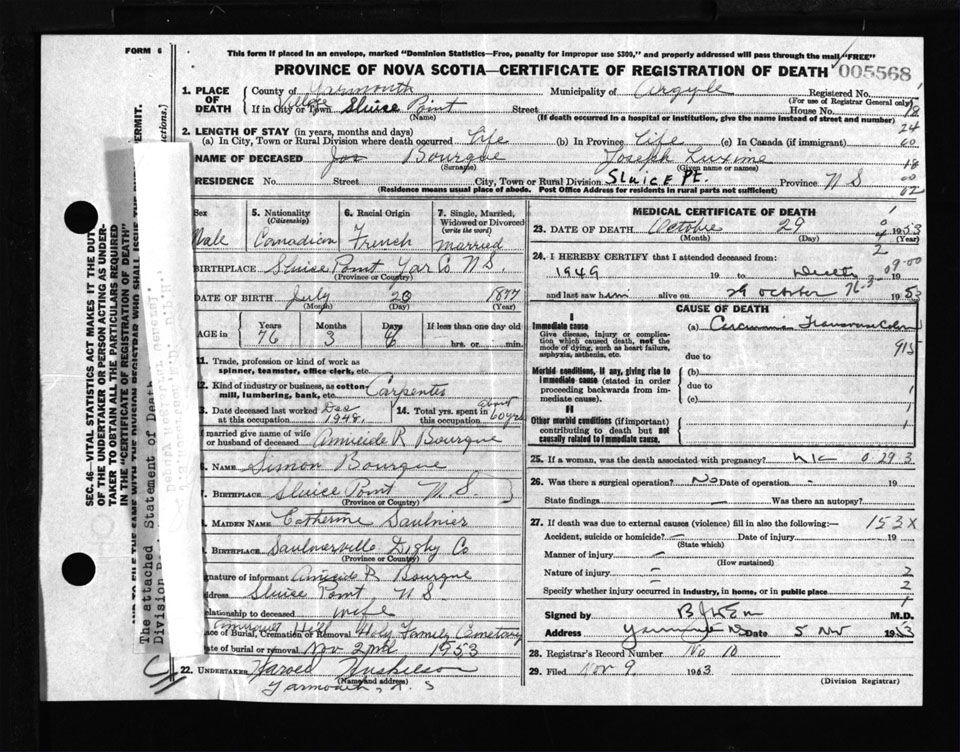 FORM 6
This form if placed in an envelope, marked "Dominion Statistics—Free, penalty for improper use $300," and properly addressed will pass through the mail "FREE"
PROVINCE OF NOVA SCOTIA—CERTIFICATE OF REGISTRATION OF DEATH 005568
1. PLACE OF DEATH
County of Yarmouth Municipality of Argyle Registered No.
(For use of Registrar General only)
If in City or Town Village Sluice Point Street House No.
(Name) (If death occurred in a hospital or institution, give the name instead of street and number)
2. LENGTH OF STAY (in years, months and days)
(a) In City, Town or Rural Division where death occurred Life (b) In Province Life (c) In Canada (if immigrant)
NAME OF DECEASED Jos Bourque Joseph
(Surname) (Given name or names)
RESIDENCE No. Street City, Town or Rural Division Sluice Pt. Province N S
(Residence means usual place of abode. Post Office Address for residents in rural parts not sufficient)
Sex Male
5. Nationality (Citizenship) Canadian
6. Racial Origin French
7. Single, Married, Widowed or Divorced (write the word) Married
BIRTHPLACE Sluice Point Yar Co N.S.
(Province or Country)
DATE OF BIRTH July 23 1877
(Month) (Day) (Year)
AGE in Years 76 Months 3 Days 6 If less than one day old hrs. or min.
11. Trade, profession or kind of work as spinner, teamster, office clerk, etc.
12. Kind of industry or business, as cotton-mill, lumbering, bank, etc. Carpenter
Date deceased last worked at this occupation Dec 1948.
14. Total yrs. spent in this occupation about 60 yrs
If married give name of wife or husband of deceased R Bourque
NAME Simon Bourque
BIRTHPLACE Sluice Point N S
(Province or Country)
MAIDEN NAME Catherine Saulnier
BIRTHPLACE Saulnerville Digby Co
(Province or Country)
Signature of informant R Bourque
Address Sluice Point, N S.
Relationship to deceased wife
Place of Burial, Cremation or Removal Hill Holy Family Cemetary
Date of burial or removal Nov 2nd 1953
22. UNDERTAKER Harold Huskilson
(Name and address)
Yarmouth, N. S
MEDICAL CERTIFICATE OF DEATH
23. DATE OF DEATH October 29 1953
(Month) (Day) (Year)
24. I HEREBY CERTIFY that I attended deceased from:
1949 19 to Death 19
and last saw him alive on 29 October 1953
CAUSE OF DEATH
I
Immediate cause
Give disease, injury or complication which caused death, not the mode of dying, such as heart failure, asphyxia, asthenia, etc.
(a) Carcinoma Transverse Colon
915
due to
Morbid conditions, if any, giving rise to immediate cause (stated in order proceeding backwards from immediate cause).
(b)
due to
(c)
II
Other morbid conditions (if important) contributing to death but not causally related to immediate cause.
25. If a woman, was the death associated with pregnancy? 0.29.3
26. Was there a surgical operation? No Date of operation 19
State findings Was there an autopsy?
27. If death was due to external causes (violence) fill in also the following:— 153X
Accident, suicide or homicide? Date of injury 19
(State which)
Manner of injury
(How sustained)
Nature of injury 2
Specify whether injury occurred in industry, in home, or in public place 2
Signed by M.D.
Address Yarmouth NS Date 5 Nov 1953
28. Registrar's Record Number No 10
29. Filed Nov 9 1953
(Division Registrar)
SEC. 46—VITAL STATISTICS ACT MAKES IT THE DUTY
OF THE UNDERTAKER OR PERSON ACTING AS UNDER-
TAKER TO OBTAIN ALL THE PARTICULARS REQUIRED
IN THE "CERTIFICATE OF REGISTRATION OF DEATH"
The attached Statement of Death
Division